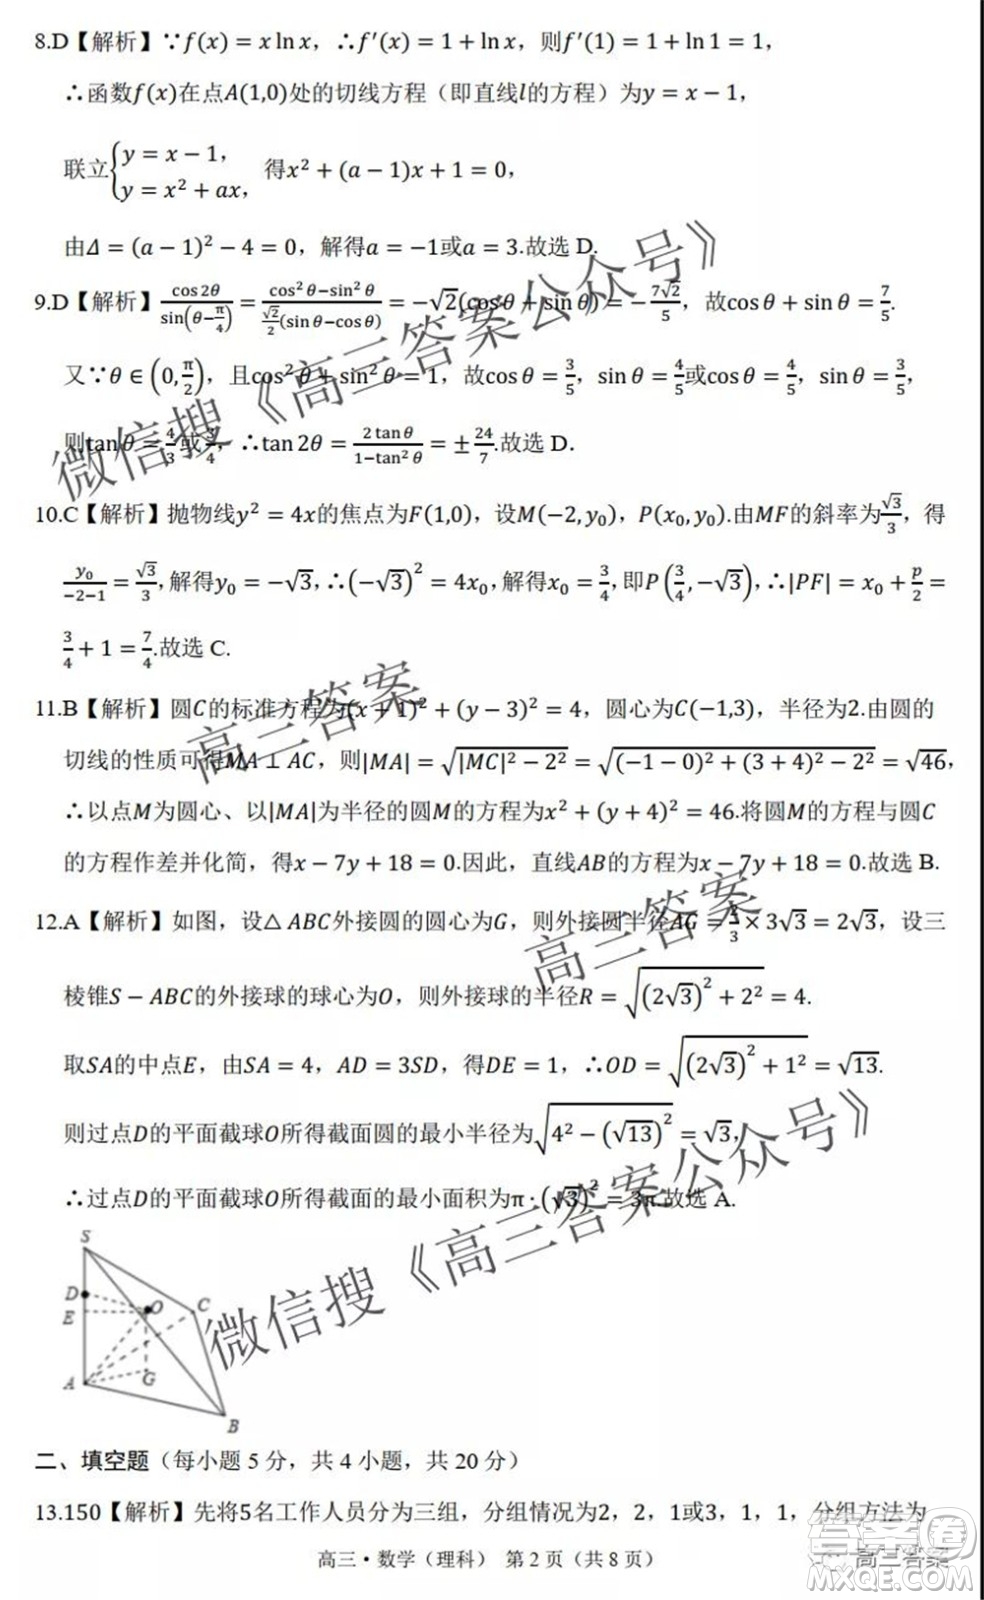 8.D【解析】∵f(x)=x ln x，∴f′(x)=1+ln x，则f′(1)=1+ln 1=1，
∴函数f(x)在点A(1,0)处的切线方程（即直线l的方程）为y=x−1，
联立{y=x−1，y=x²+ax，得x²+(a−1)x+1=0，
由Δ=(a−1)²−4=0，解得a=−1或a=3.故选 D.
9.D【解析】cos2θ/sin(θ−π/4)=(cos²θ−sin²θ)/(√2/2(sinθ−cosθ))=−√2(cosθ+sinθ)=−7√2/5，故cosθ+sinθ=7/5.
又∵θ∈(0,π/2)，且cos²θ+sin²θ=1，故cosθ=3/5，sinθ=4/5或cosθ=4/5，sinθ=3/5，
则tanθ=4/3或3/4，∴tan2θ=2tanθ/(1−tan²θ)=±24/7.故选 D.
10.C【解析】抛物线y²=4x的焦点为F(1,0)，设M(−2,y₀)，P(x₀,y₀).由MF的斜率为√3/3，得
y₀/(−2−1)=√3/3，解得y₀=−√3，∴(−√3)²=4x₀，解得x₀=3/4，即P(3/4,−√3)，∴|PF|=x₀+p/2=
3/4+1=7/4.故选 C.
11.B【解析】圆C的标准方程为(x+1)²+(y−3)²=4，圆心为C(−1,3)，半径为2.由圆的
切线的性质可得MA⊥AC，则|MA|=√(|MC|²−2²)=√((−1−0)²+(3+4)²−2²)=√46，
∴以点M为圆心、以|MA|为半径的圆M的方程为x²+(y+4)²=46.将圆M的方程与圆C
的方程作差并化简，得x−7y+18=0.因此，直线AB的方程为x−7y+18=0.故选 B.
12.A【解析】如图，设△ABC外接圆的圆心为G，则外接圆半径AG=2/3×3√3=2√3，设三
棱锥S−ABC的外接球的球心为O，则外接球的半径R=√((2√3)²+2²)=4.
取SA的中点E，由SA=4，AD=3SD，得DE=1，∴OD=√((2√3)²+1²)=√13.
则过点D的平面截球O所得截面圆的最小半径为√(4²−(√13)²)=√3，
∴过点D的平面截球O所得截面的最小面积为π·(√3)²=3π.故选 A.
S
D
E
O
C
A
G
B
二、填空题（每小题 5 分，共 4 小题，共 20 分）
13.150【解析】先将5名工作人员分为三组，分组情况为2，2，1或3，1，1，分组方法为
高三·数学（理科） 第 2 页（共 8 页）
微信搜《高三答案公众号》
高三答案
高三答案
微信搜《高三答案公众号》
答案卷
高三答案
MXQE.COM